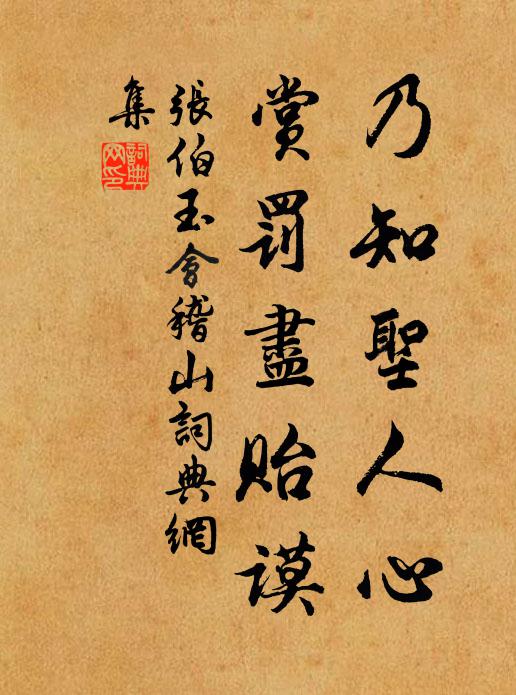 乃知聖人心
賞罰盡貽謨
張伯玉會稽山詞典網
集
詞典網印